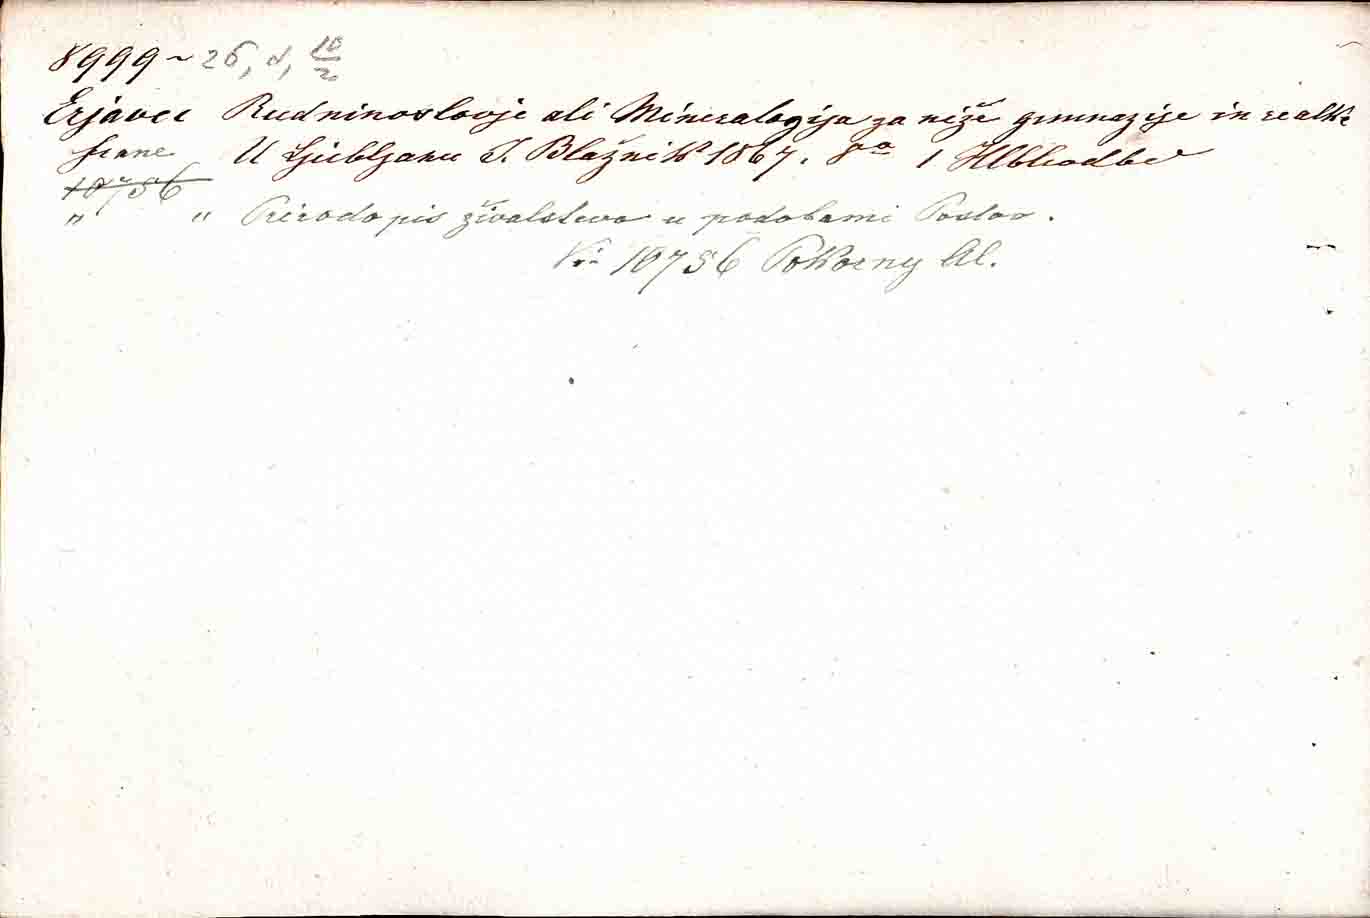 8999 ~ 26, d, 10/20
Erjavec Rudninoslovje ali Mineralogija za niže gimnazije in realke
Franc U Ljubljani J. Blaznik 1867. 8o 1 Hlblrodbd
10736
" " Prirodopis živalstva u podobami Poslov.
Vide 10736 Pokorny Al.